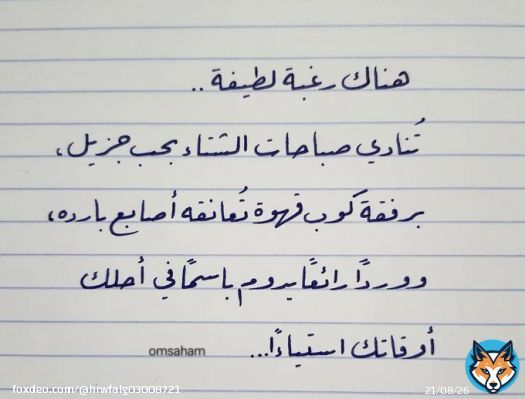 هناك رغبة لطيفة ..
تُنادي صباحات الشتاء بحب جزيل،
برفقة كوب قهوة تُعانقه أصابع بارده،
ووردًا رائعًا يدوم باسمًا في أحلك
أوقاتك استياءًا...
omsaham
foxdeo.com/@hiwfalg03008721
21/08/26